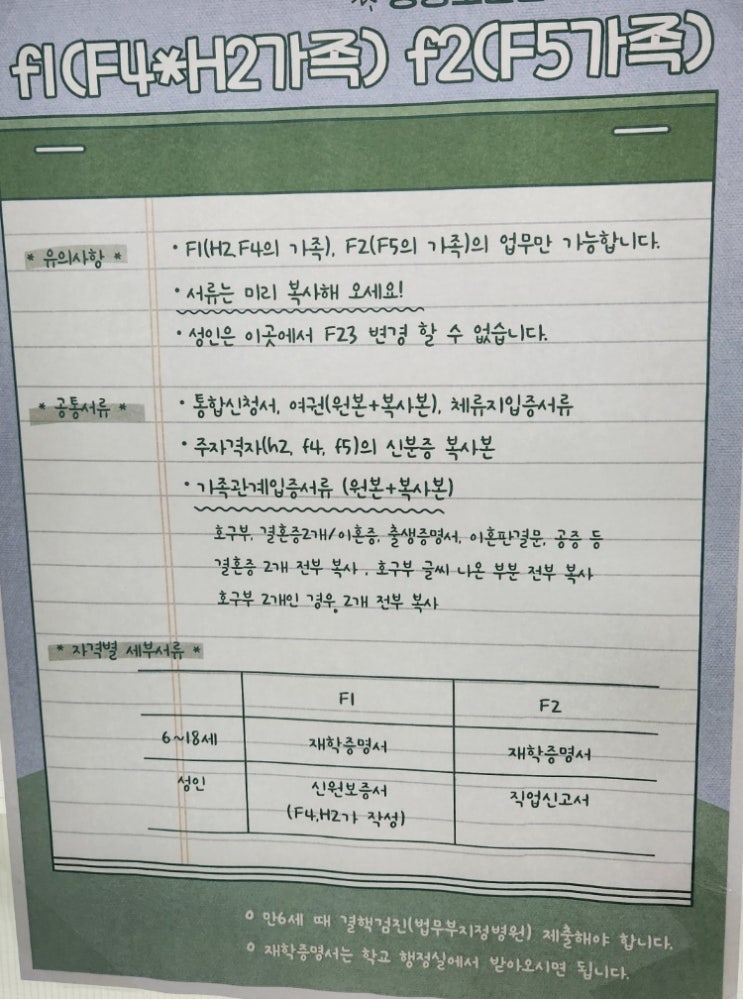 f1(F4*H2가족) f2(F5가족)
* 유의사항 *
• F1(H2,F4의 가족), F2(F5의 가족)의 업무만 가능합니다.
• 서류는 미리 복사해 오세요!
• 성인은 이곳에서 F23 변경 할 수 없습니다.
* 공통서류 *
• 통합신청서, 여권(원본+복사본), 체류지입증서류
• 주자격자(h2, f4, f5)의 신분증 복사본
• 가족관계입증서류 (원본+복사본)
호구부, 결혼증2개/이혼증, 출생증명서, 이혼판결문, 공증 등
결혼증 2개 전부 복사, 호구부 글씨 나온 부분 전부 복사
호구부 2개인 경우, 2개 전부 복사
* 자격별 세부서류 *
F1 F2
6~18세 재학증명서 재학증명서
성인 신원보증서 직업신고서
(F4,H2가 작성)
o 만6세 때 결핵검진(법무부지정병원) 제출해야 합니다.
o 재학증명서는 학교 행정실에서 받아오시면 됩니다.